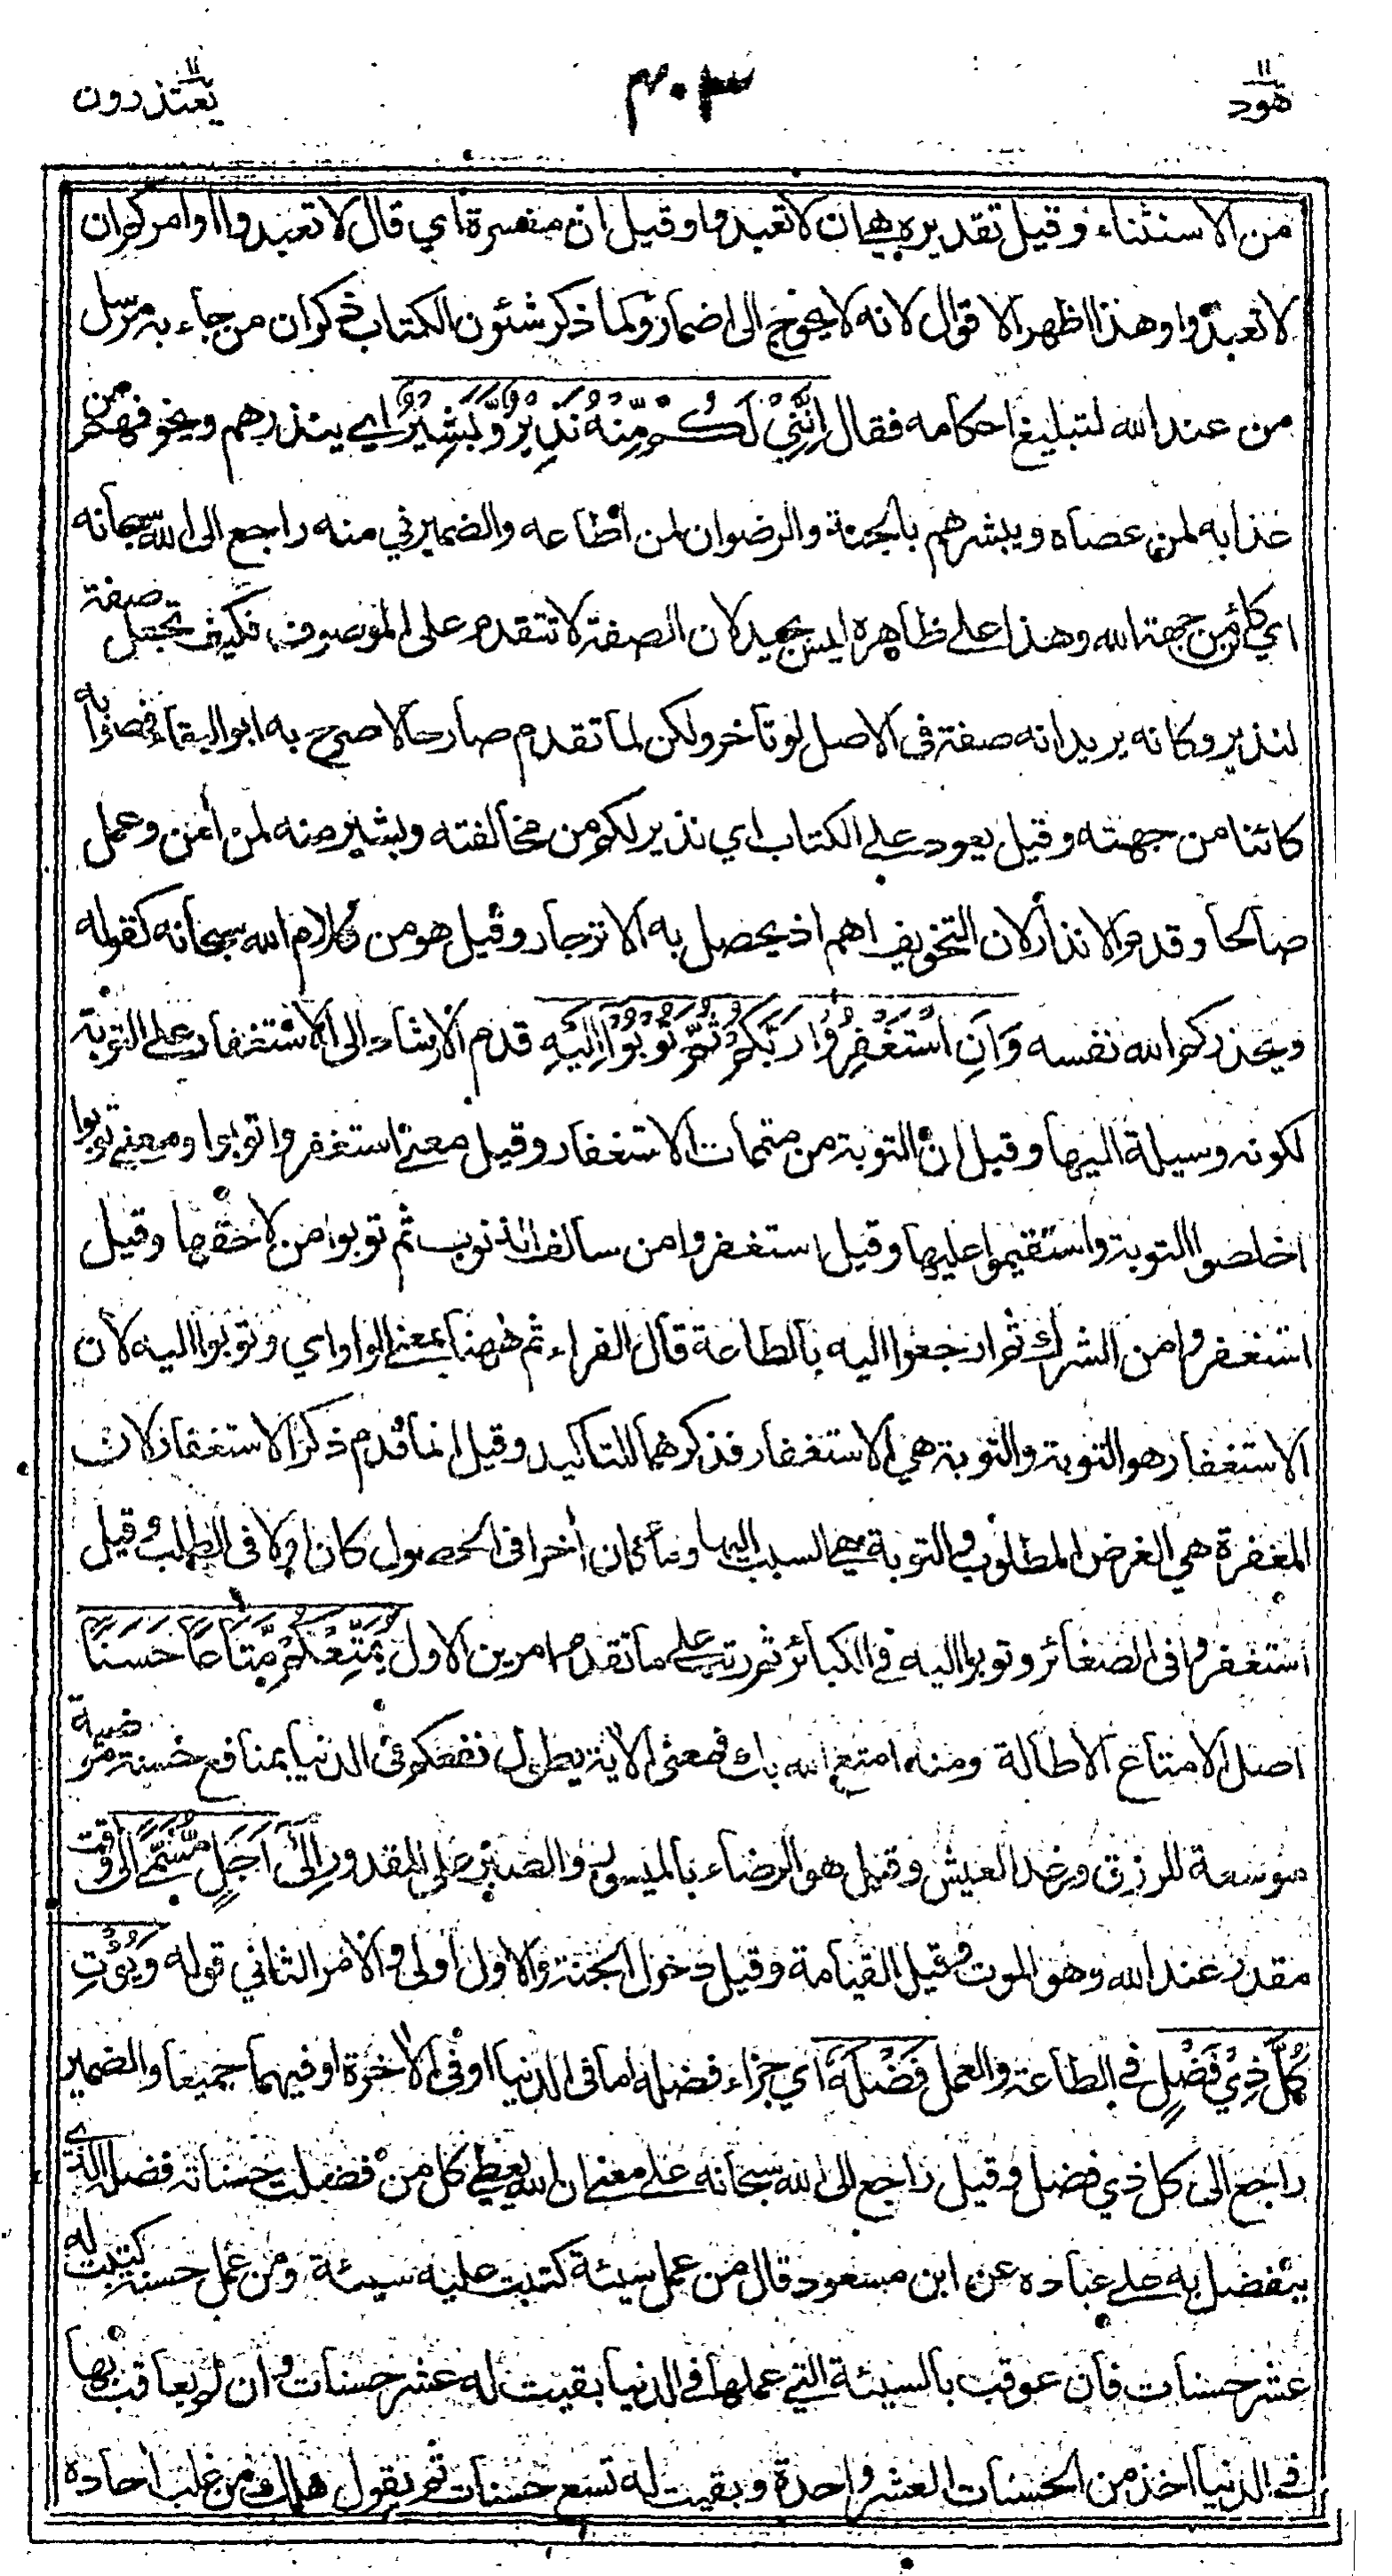 هود ١١
٣٠٣
يعتذرون ١١
من الاستثناء وقيل تقديره هي ان لا تعبدوا وقيل ان مفسرة اي قال لا تعبدوا او امركم ان
لا تعبدوا وهذا اظهر الاقوال لانه لا يحوج الى اضمار ولما ذكر شئون الكتاب ذكر ان من جاء به مرسل
من عند الله لتبليغ احكامه فقال اِنَّنِيْ لَكُمْ مِّنْهُ نَذِيْرٌ وَّبَشِيْرٌ اي ينذرهم ويخوفهم من
عذابه لمن عصاه ويبشرهم بالجنة والرضوان لمن أطاعه والضمير في منه راجع الى الله سبحانه
اي كائن من جهة الله وهذا على ظاهره ليس بجيد لان الصفة لا تتقدم على الموصوف فكيف تجعل صفة
لنذير وكانه يريد انه صفة في الاصل لو تأخر ولكن لما تقدم صار حالا صرح به ابو البقاء فصوابه
كائنا من جهته وقيل يعود على الكتاب اي نذير لكم من مخالفته وبشير منه لمن أمن وعمل
صالحا وقدم الانذار لان التخويف اهم اذ يحصل به الانزجار وقيل هو من كلام الله سبحانه كقوله
ويحذركم الله نفسه وَاَنِ اسْتَغْفِرُوْا رَبَّكُمْ ثُمَّ تُوْبُوْٓا اِلَيْهِ قدم الارشاد الى الاستغفار على التوبة
لكونه وسيلة اليها وقيل ان التوبة من متممات الاستغفار وقيل معنى استغفروا توبوا ومعنى توبوا
اخلصوا التوبة واستقيموا عليها وقيل استغفروا من سالف الذنوب ثم توبوا من لاحقها وقيل
استغفروا من الشرك ثم ارجعوا اليه بالطاعة قال الفراء ثم ههنا بمعنى الواو اي وتوبوا اليه لان
الاستغفار هو التوبة والتوبة هي الاستغفار فذكرهما للتاكيد وقيل انما قدم ذكر الاستغفار لان
المغفرة هي الغرض المطلوب والتوبة هي السبب اليها وما كان أخرا في الحصول كان اولا في الطلب وقيل
استغفروا في الصغائر وتوبوا اليه في الكبائر ثم رتب على ما تقدم امرين الاول يُمَتِّعْكُمْ مَّتَاعًا حَسَنًا
اصل الامتاع الاطالة ومنه امتع الله بك فمعنى الاية يطول نفعكم في الدنيا بمنافع حسنة مرضية
موسعة للرزق ورغد العيش وقيل هو الرضاء بالميسور والصبر على المقدور اِلٰٓى اَجَلٍ مُّسَمًّى الى وقت
مقدر عند الله وهو الموت وقيل القيامة وقيل دخول الجنة والاول أولى والامر الثاني قوله وَيُؤْتِ
كُلَّ ذِيْ فَضْلٍ في الطاعة والعمل فَضْلَهٗ اي جزاء فضله اما في الدنيا او في الأخرة او فيهما جميعا والضمير
راجع الى كل ذي فضل وقيل راجع الى الله سبحانه على معنى ان الله يعطي كل من فضلت حسناته فضله الذي
يتفضل به على عباده عن ابن مسعود قال من عمل سيئة كتبت عليه سيئة ومن عمل حسنة كتبت له
عشر حسنات فان عوقب بالسيئة التي عملها في الدنيا بقيت له عشر حسنات وان لم يعاقب بها
في الدنيا اخذ من الحسنات العشر واحدة وبقيت له تسع حسنات ثم يقول هلك من غلب أحاده